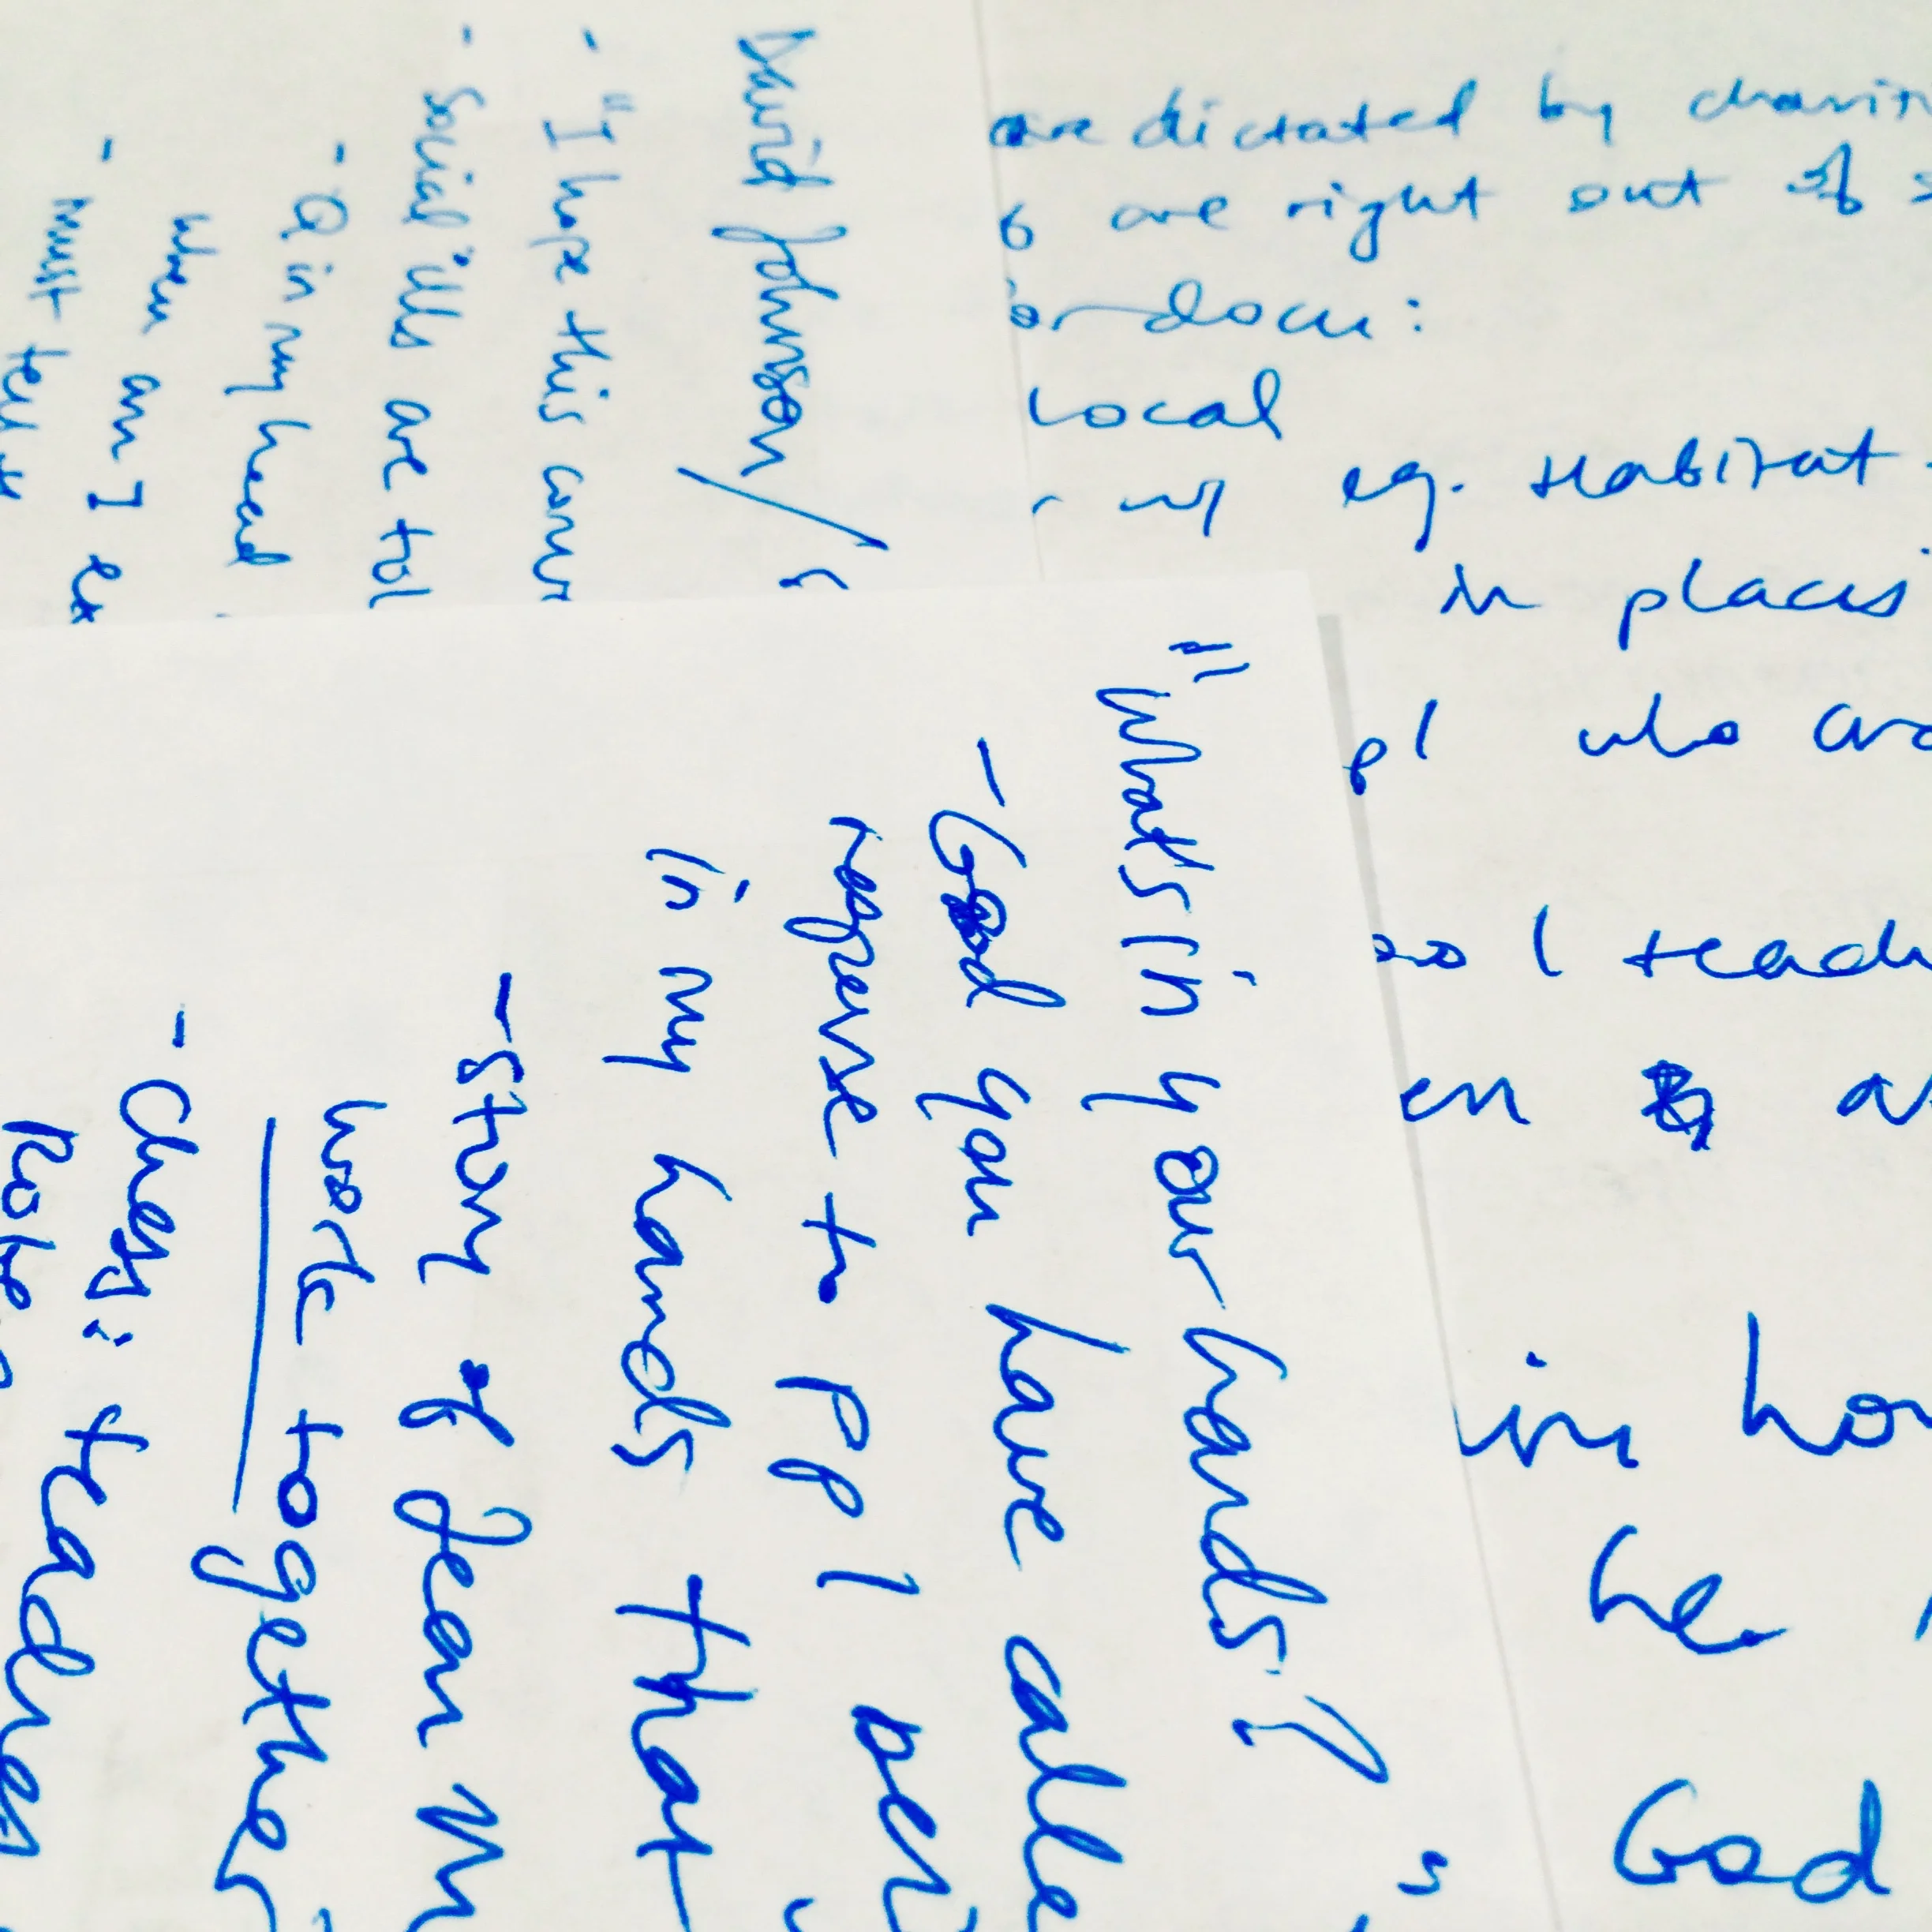 David Johnson/
- "I hope this conv
- Social ills are tol
- Q in my head
when an I ex
- must tell
are dictated by charit
6 are right out of s
or docu:
Local
eg. Habitat
in places
pl who are
so I teach
en a
in ho
he
God
"What's in your hands?
- God you have calle
response to ppl
in my hands that
- Story of Jean M
work together
- Chess: teaches